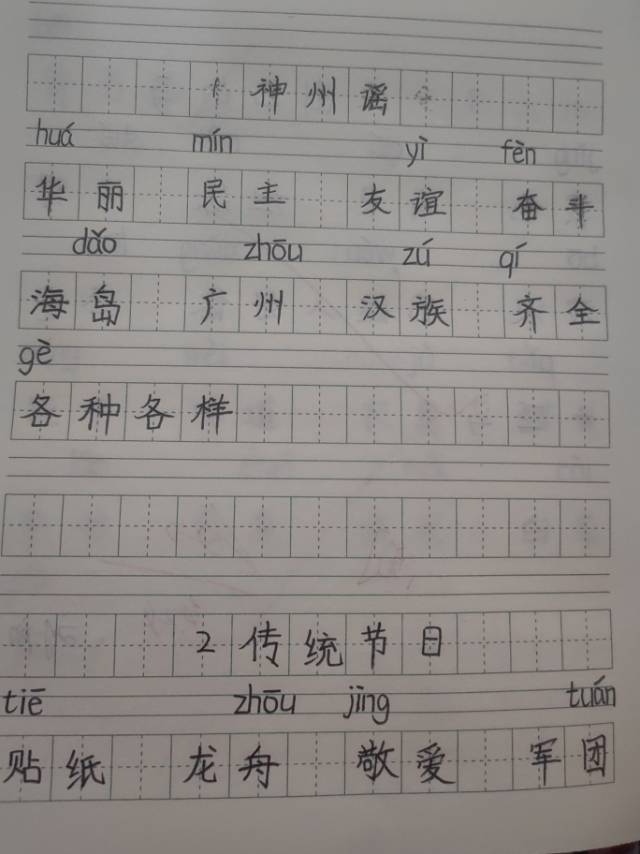 1 神州谣
huá mín yì fèn
华丽 民主 友谊 奋斗
dǎo zhōu zú qí
海岛 广州 汉族 齐全
gè
各种各样
2 传统节日
tiē zhōu jìng tuán
贴纸 龙舟 敬爱 军团